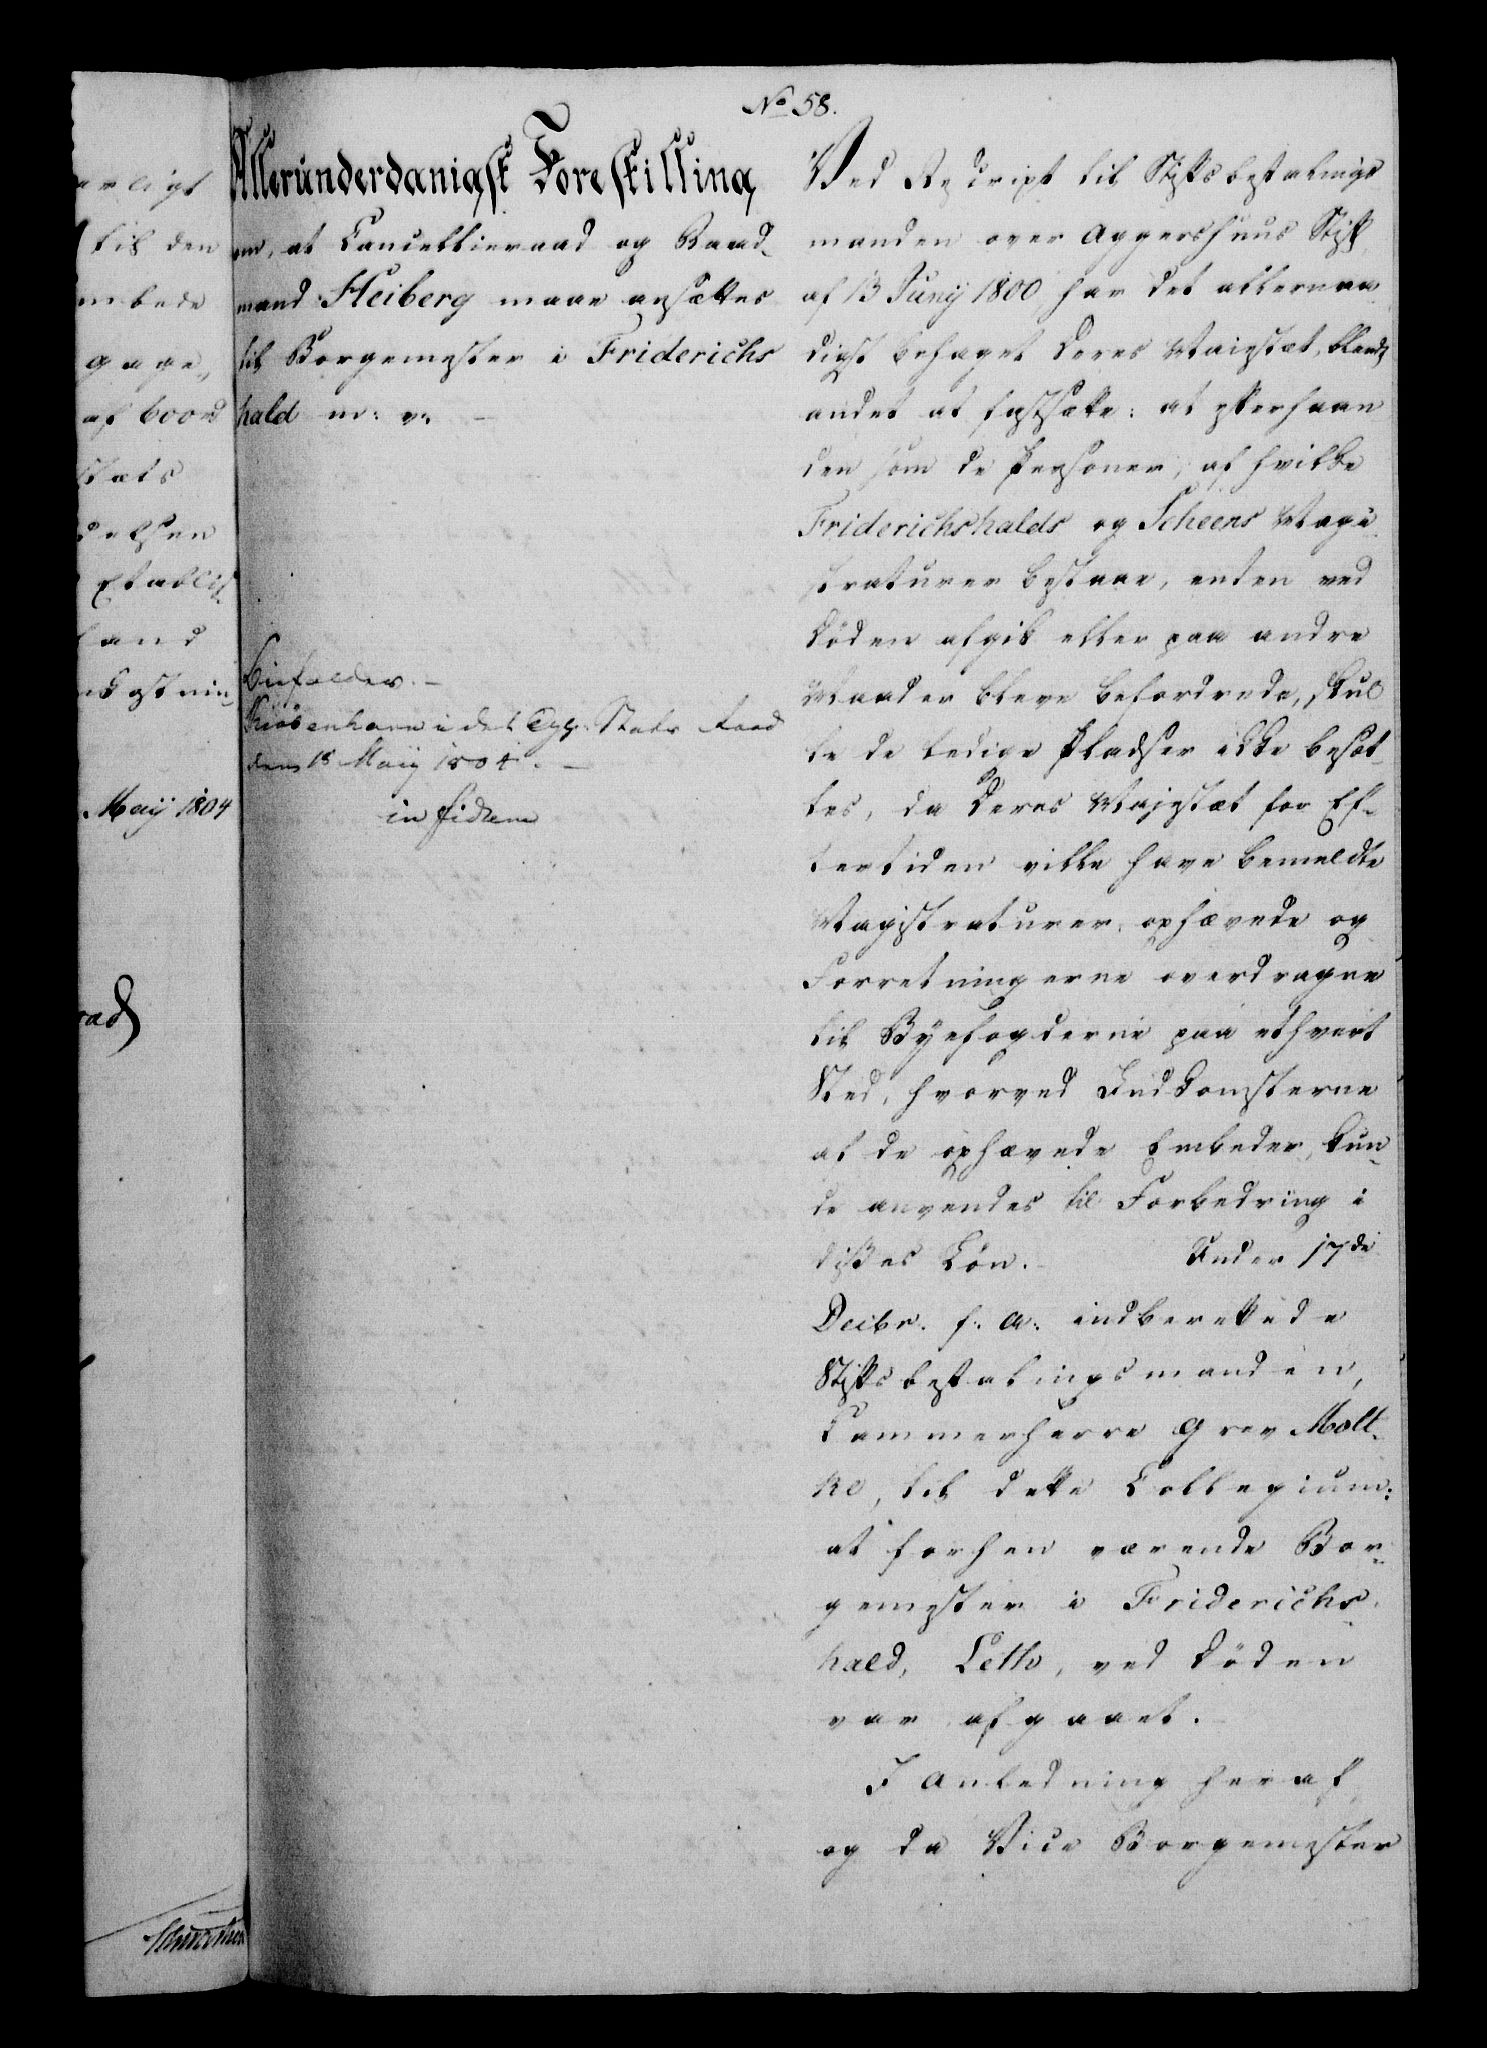 No 58.
Allerunderdanigst Forestilling
om, at Cancellieraad og Raad-
mand Heiberg maae ansættes
til Borgemester i Friderichs
hald m: v: -
Bifaldes. -
Kiøbenhavn i det Stats Raad
den 18 Maij 1804. -
in fidem
Ved Rescript til Stiftsbefalings
manden over Aggershuus Stift
af 13 Junij 1800 har det allernaa
digst behaget Deres Majestæt, blandt
andet at fastsætte: at efterhaan
den som de Personer, af hvilke
Friderichshalds og Scheens Magi
straturer bestaae, enten ved
Døden afgik eller paa andre
Maader bleve befordrede, skul
le de ledige Pladser ikke besæt-
tes, da Deres Majestæt for Ef-
tertiden ville have bemeldte
Magistraturer ophævede og
Forretningerne overdragne
til Byefogderne paa ethvert
Sted, hvorved Indkomsterne
af de ophævede Embeder, kun-
de anvendes til Forbedring i
disses Løn. - Under 17de
Decbr. f: A: indberettede
Stiftsbefalingsmanden,
Kammerherre Grev Molt-
ke, til dette Collegium:
at forhen værende Bor-
gemester i Friderichs-
hald, Leth, ved Døden
var afgaaet. -
I Anledning heraf
og da Vice Borgemester
arligt
til den
mbede
gage,
af 600rd
stæts
delsen
Etablis-
land
kostnin-
Maij 1804
raad